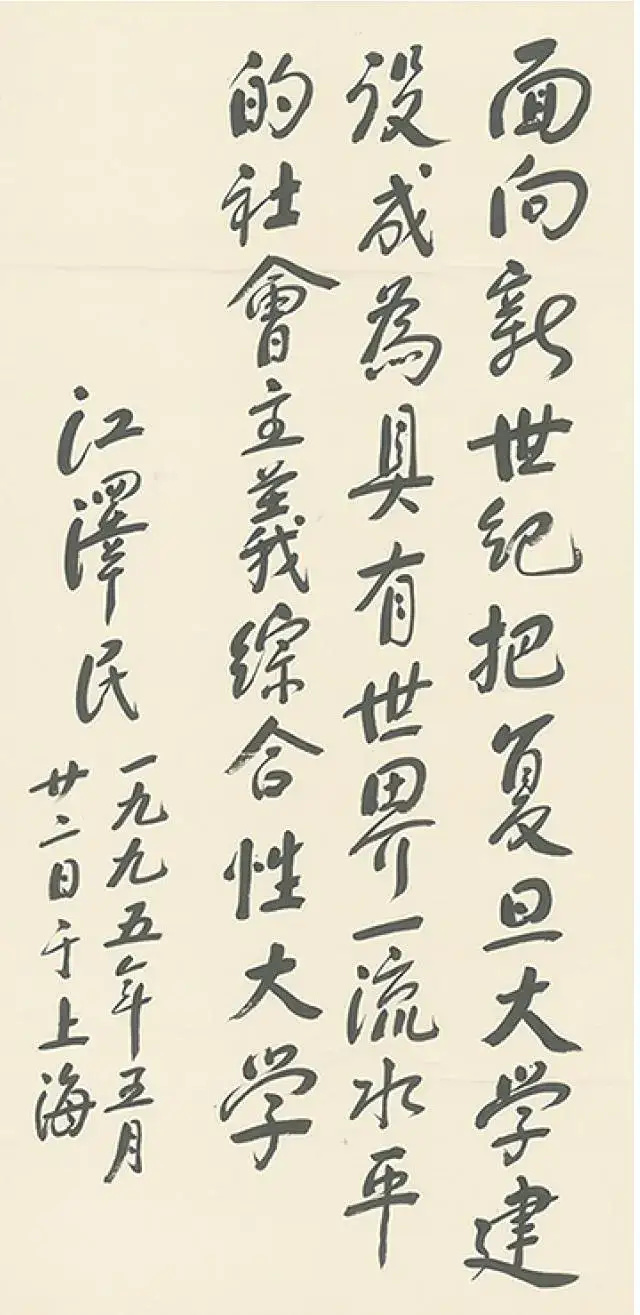 面向新世纪把复旦大学建
设成为具有世界一流水平
的社會主義综合性大学
江澤民
一九九五年五月
廿二日于上海